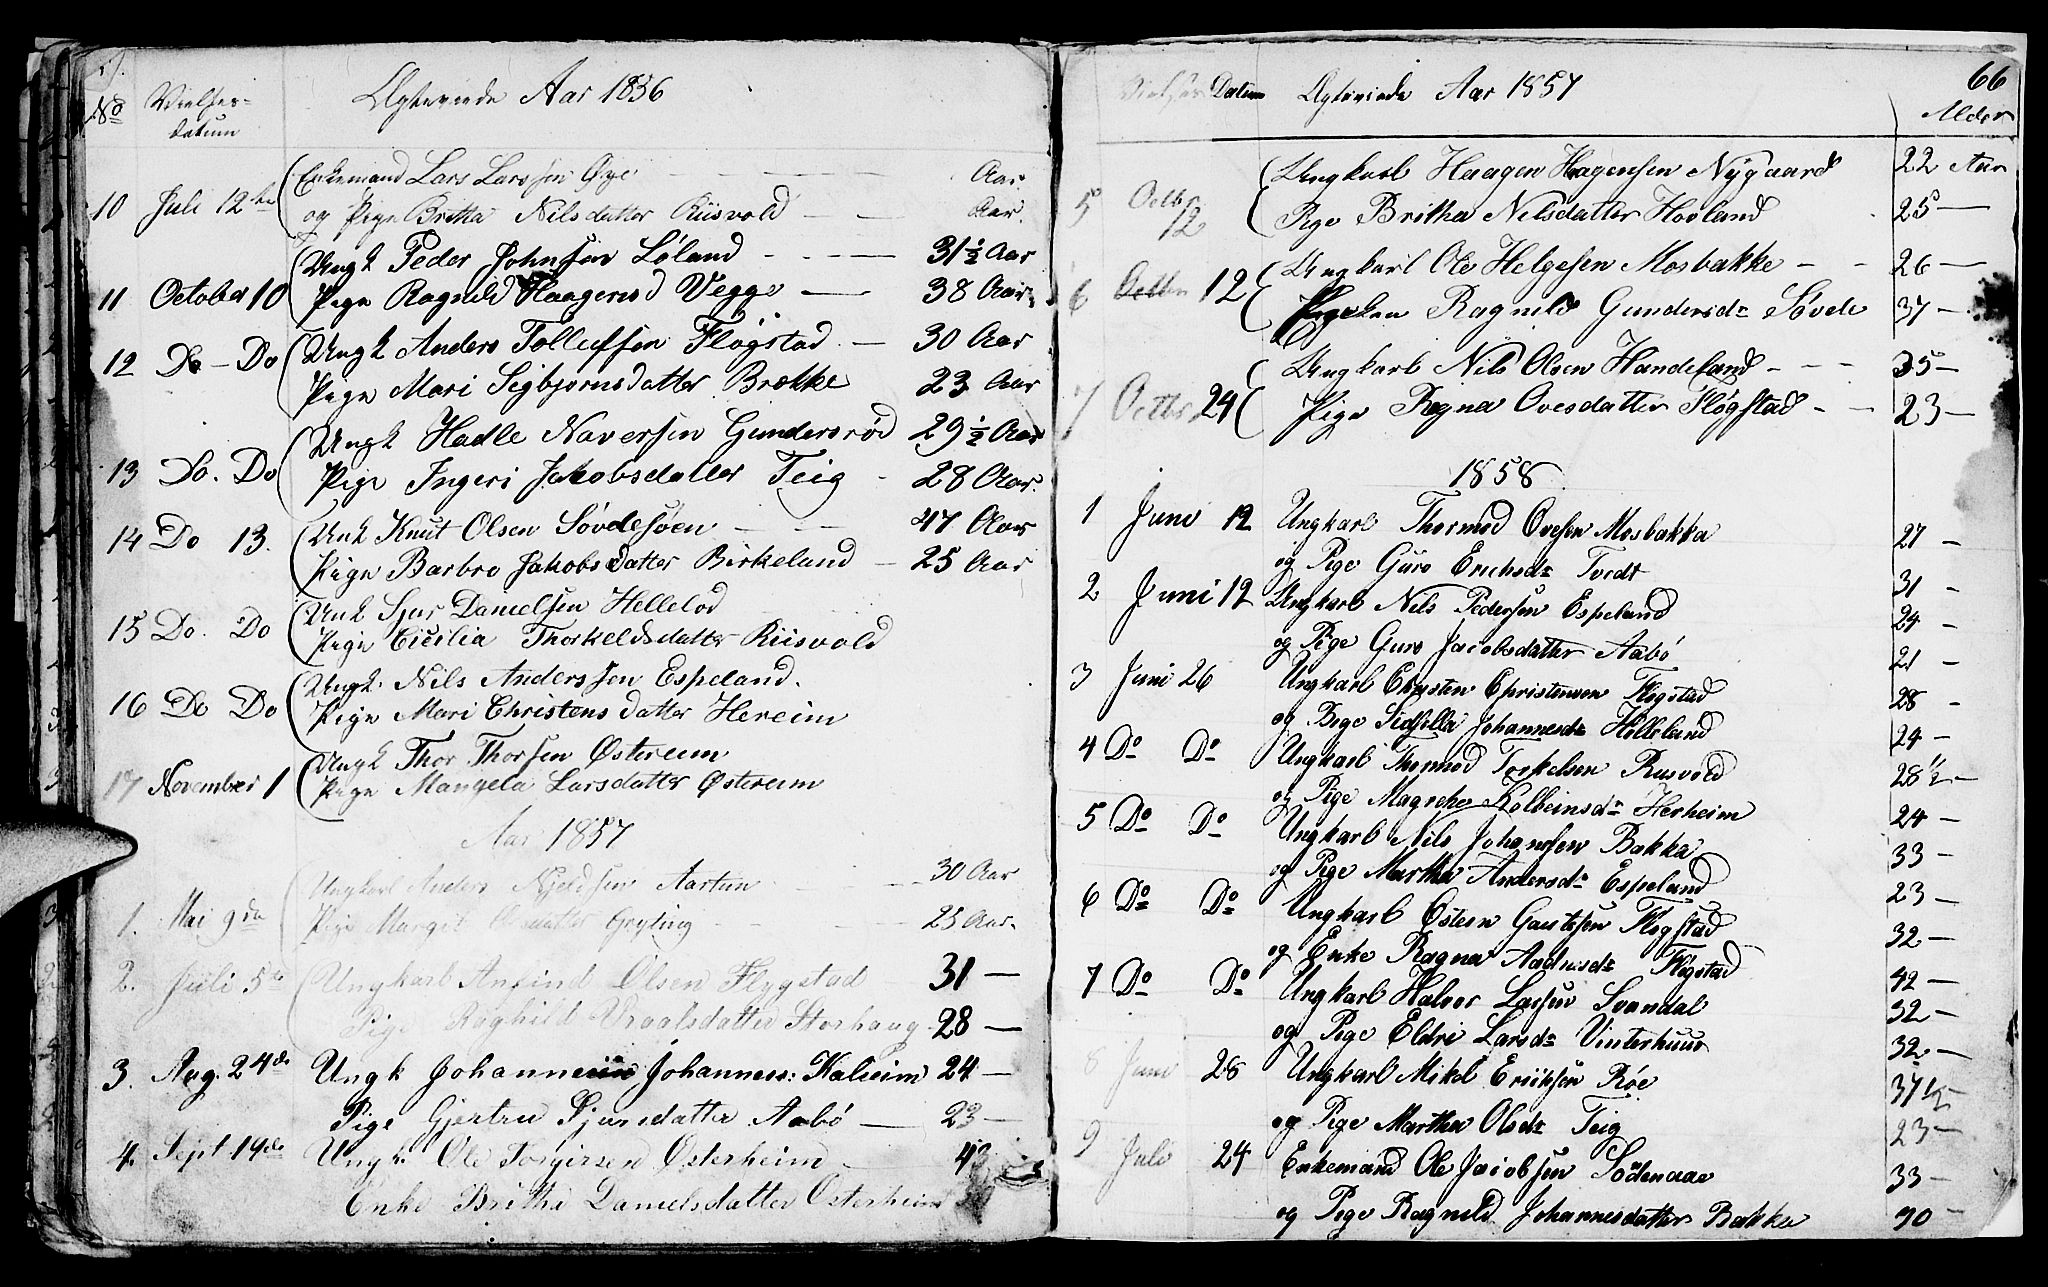 No Vielses- Ægteviede Aar 1856
datum
Enkemand Lars Larssen Øye - - - Aar
10 Juli 12te og Pige Britha Nilsdatter Riisvold - - Aar
Ungk Peder Johnssen Løland - - - 31 1/2 Aar
11 October 10 Pige Ragnild Haagensd Vegge - 38 Aar
Ungk Anders Tollufsen Fløgstad - 30 Aar
12 Do - Do Pige Mari Sigbjørnsdatter Brække 23 Aar
Ungk Hadle Naversen Gundersrød 29 1/2 Aar
13 Do. Do Pige Ingeri Jakobsdatter Teig - 28 Aar.
Unk Knut Olsen Søvdesøen - - - 47 Aar
14 Do 13. Pige Barbro Jakobsdatter Birkeland - 25 Aar
Unk Sjur Danielsen Hellelod
15 Do. Do Pige Cicilia Thorkeldsdatter Riisvold
Ungk. Nils Anderssen Espeland.
16 Do Do Pige Mari Christensdatter Hereim
Ungk Thor Thorsen Østereim
17 November 1 Pige Mangela Larsdatter Østereim
Aar 1857
Ungkarl Anders Njeldsen Aartun - - 30 Aar
1. Mai 9da Pige Margit Olsdatter Gryting - - 25 Aar.
2. Juli 5te Ungkarl Amund Olsen Fløgstad 31 -
Pige Raghild Vraalsdatter Storhaug 28 -
3. Aug. 24de Ungk Johannes Johanness: Kaleim 24 -
Pige Gjertru Sjursdatter Aabø - 23 -
4. Sept 14de Ungk. Ole Torgersen Østerheim -
Enke Britha Danielsdatter Østerheim
Vielses Datum Ægteviede Aar 1857 66
Alder
Ungkarl Haagen Hagensen Nygaard 22 Aar
5 Octbr 12 Pige Britha Nilsdatter Hovland 25 -
Ungkarl Ole Helgesen Mosbakke - - 26 -
6 Octbr 12 Pigen Ragnild Gundersdr Søvde 37 -
Ungkarl Nils Olsen Handeland - - - 35 -
7 Octbr 24 Pige Ragna Ovesdatter Fløgstad - - 23 -
1858
1 Juni 12 Ungkarl Thormod Ovesen Mosbakka 27 -
og Pige Guro Erichsdr Tvedt 31 -
2 Juni 12 Ungkarl Nils Pedersen Espeland 24 -
og Pige Guro Jacobsdatter Aabø 21 -
3 Juni 26 Ungkarl Chrysten Christensen Fløgstad 28 -
og Pige Sidsella Johannesdr Helleland 24 -
4 Do Do Ungkarl Thormod Torkelsen Rusvold 28 1/2 -
og Pige Magrethe Kolbeinsdr Herheim 24 -
5 Do Do Ungkarl Nils Johanssen Bakka 33 -
og Pige Martha Andersdr Espeland 23 -
6 Do Do Ungkarl Østern Gautesen Fløgstad 32 -
og Enke Ragna Aadnesdr Fløgstad 42 -
7 Do Do Ungkarl Halvor Larsen Svandal 32 -
og Pige Eldri Larsdr Vinterhuus 32 -
8 Juni 28 Ungkarl Mikel Eriksen Røe 37 1/2
og Pige Martha Olsdr Teig 23 -
9 Juli 24 Enkemand Ole Jacobsen Sødenaae 33 -
og Pige Ragnild Johannesdatter Bakka 30 -